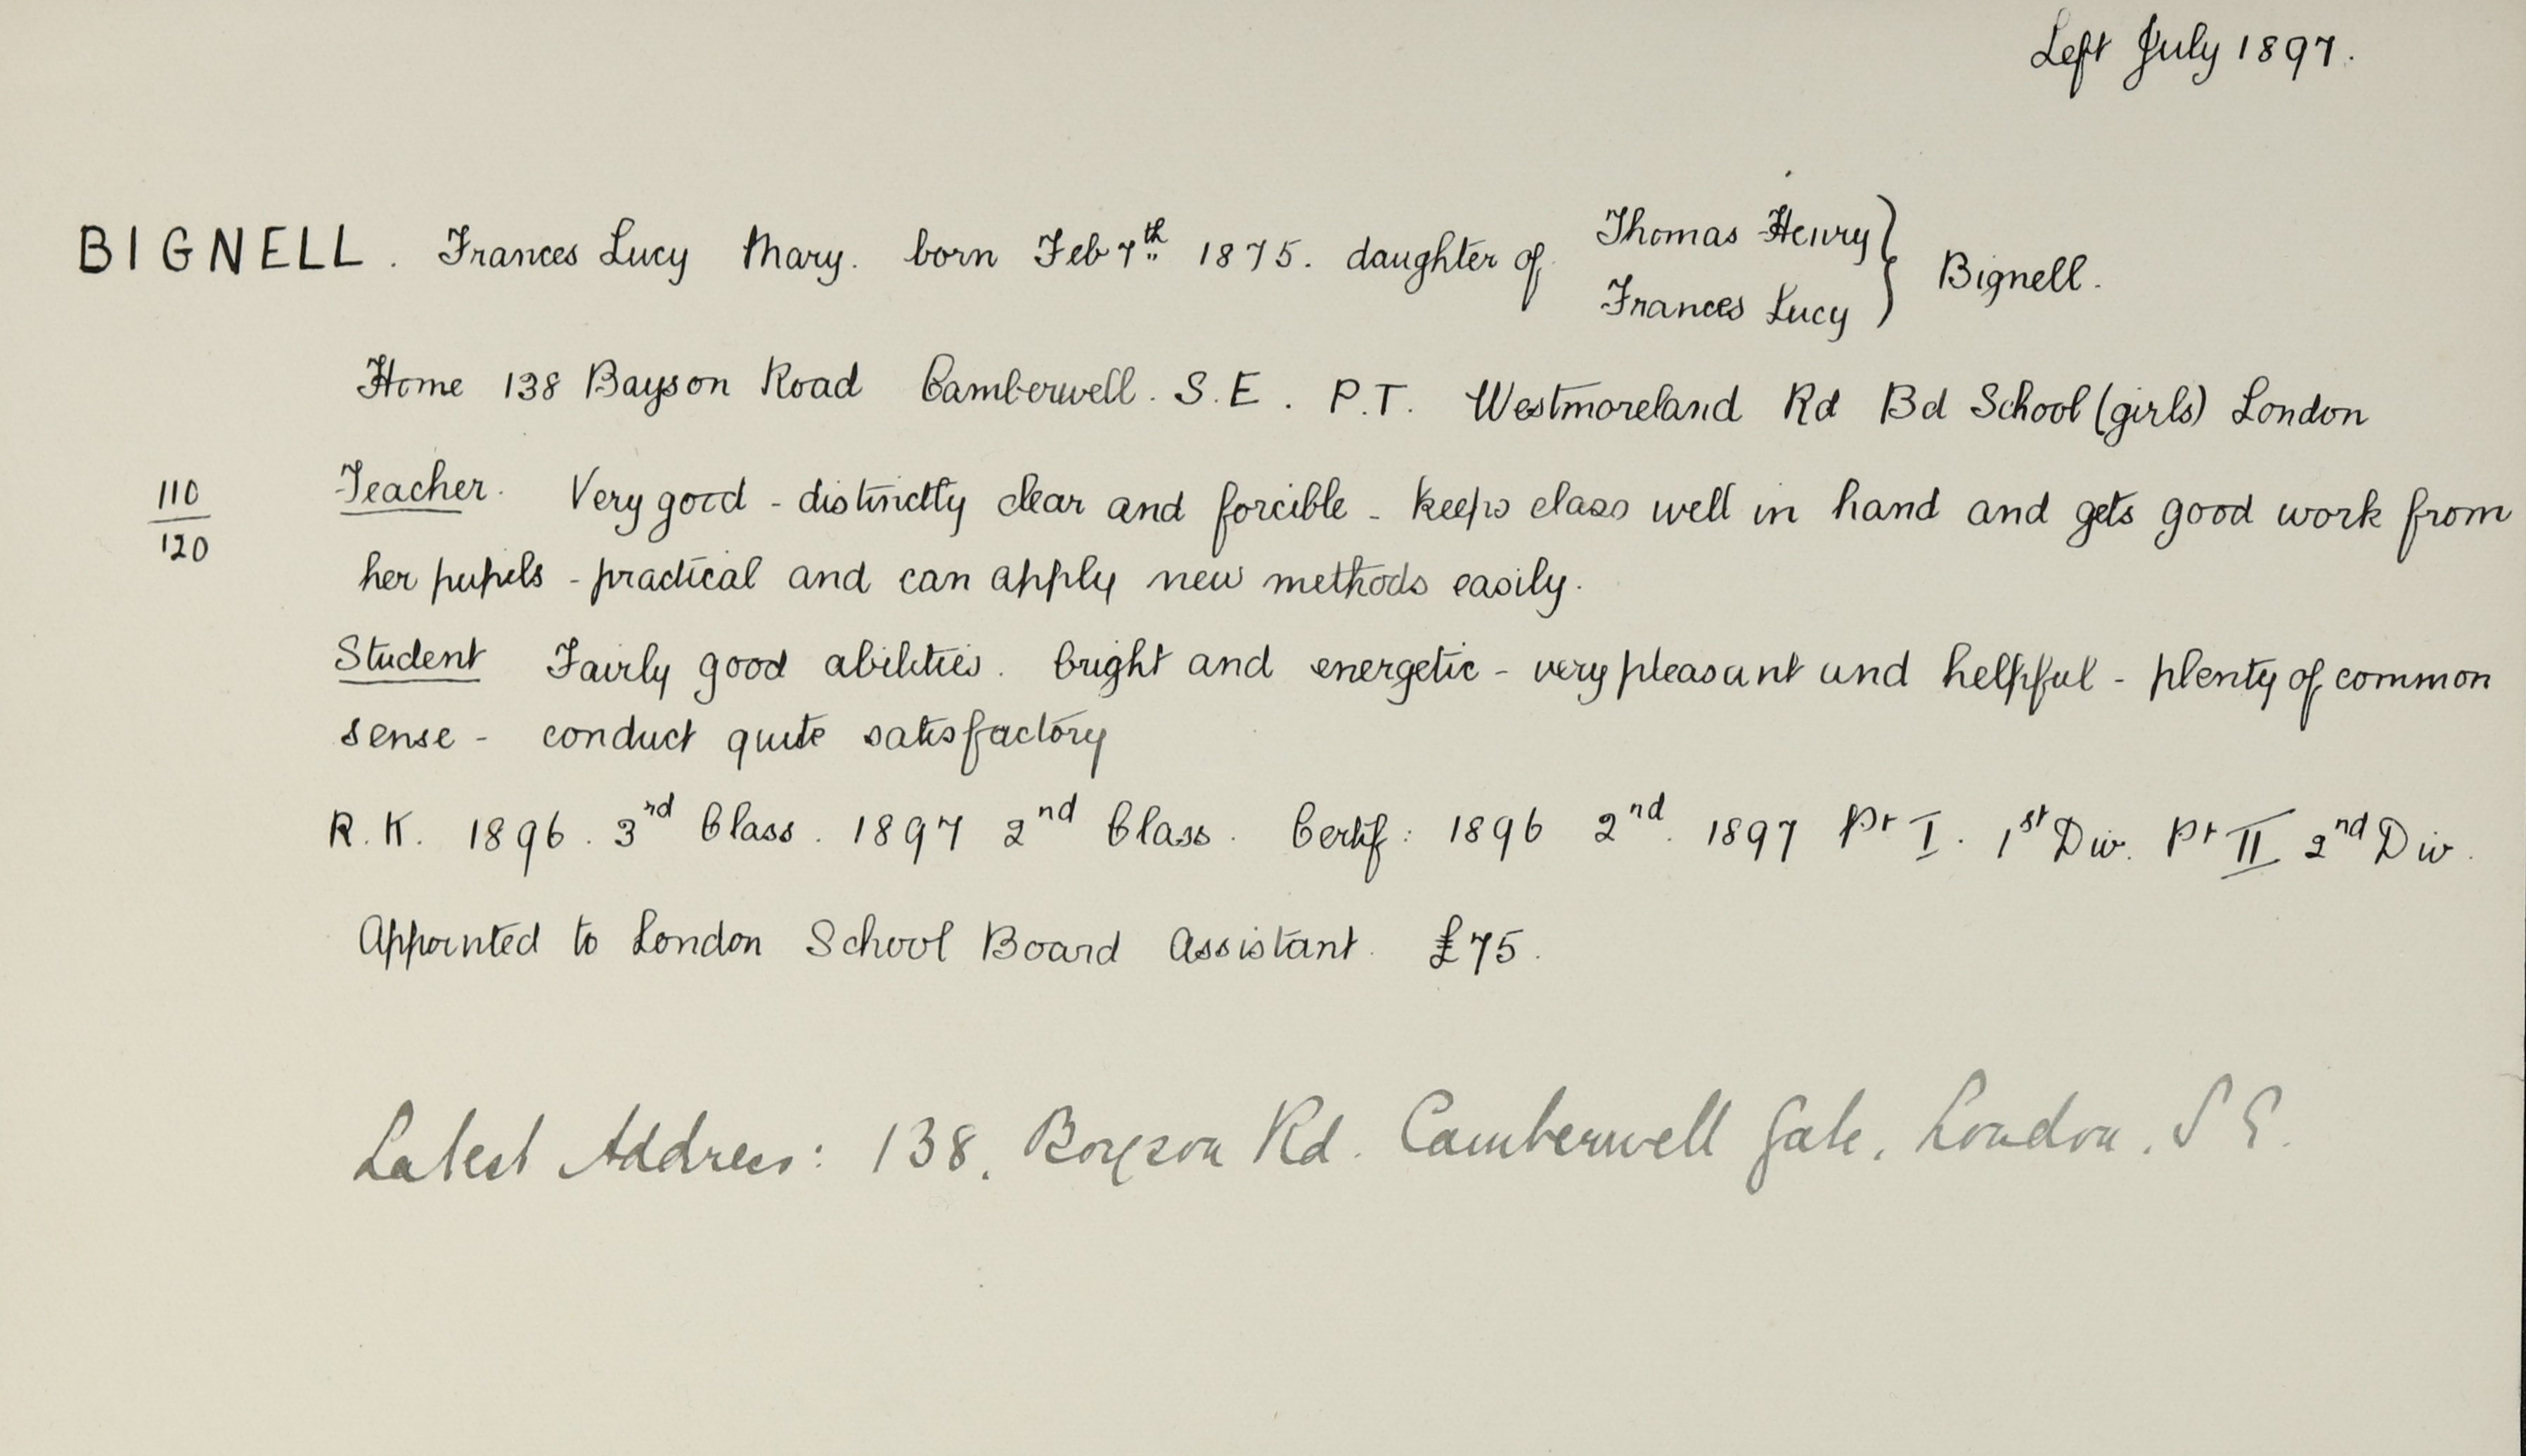 Left July 1897.
BIGNELL. Frances Lucy Mary. born Feb 7th 1875. daughter of Thomas Henry } Bignell.
Frances Lucy
Home 138 Bayson Road Camberwell. S.E. P.T. Westmoreland Rd Bd School (girls) London
110 Teacher. Very good - distinctly clear and forcible - keeps class well in hand and gets good work from
120 her pupils - practical and can apply new methods easily.
Student Fairly good abilities. bright and energetic - very pleasant and helpful - plenty of common
sense - conduct quite satisfactory
R.K. 1896. 3rd Class. 1897 2nd Class. Certif: 1896 2nd. 1897 Pt I. 1st Div. Pt II 2nd Div.
Appointed to London School Board Assistant. £75.
Latest Address: 138, Boyson Rd. Camberwell Gate, London. S E.